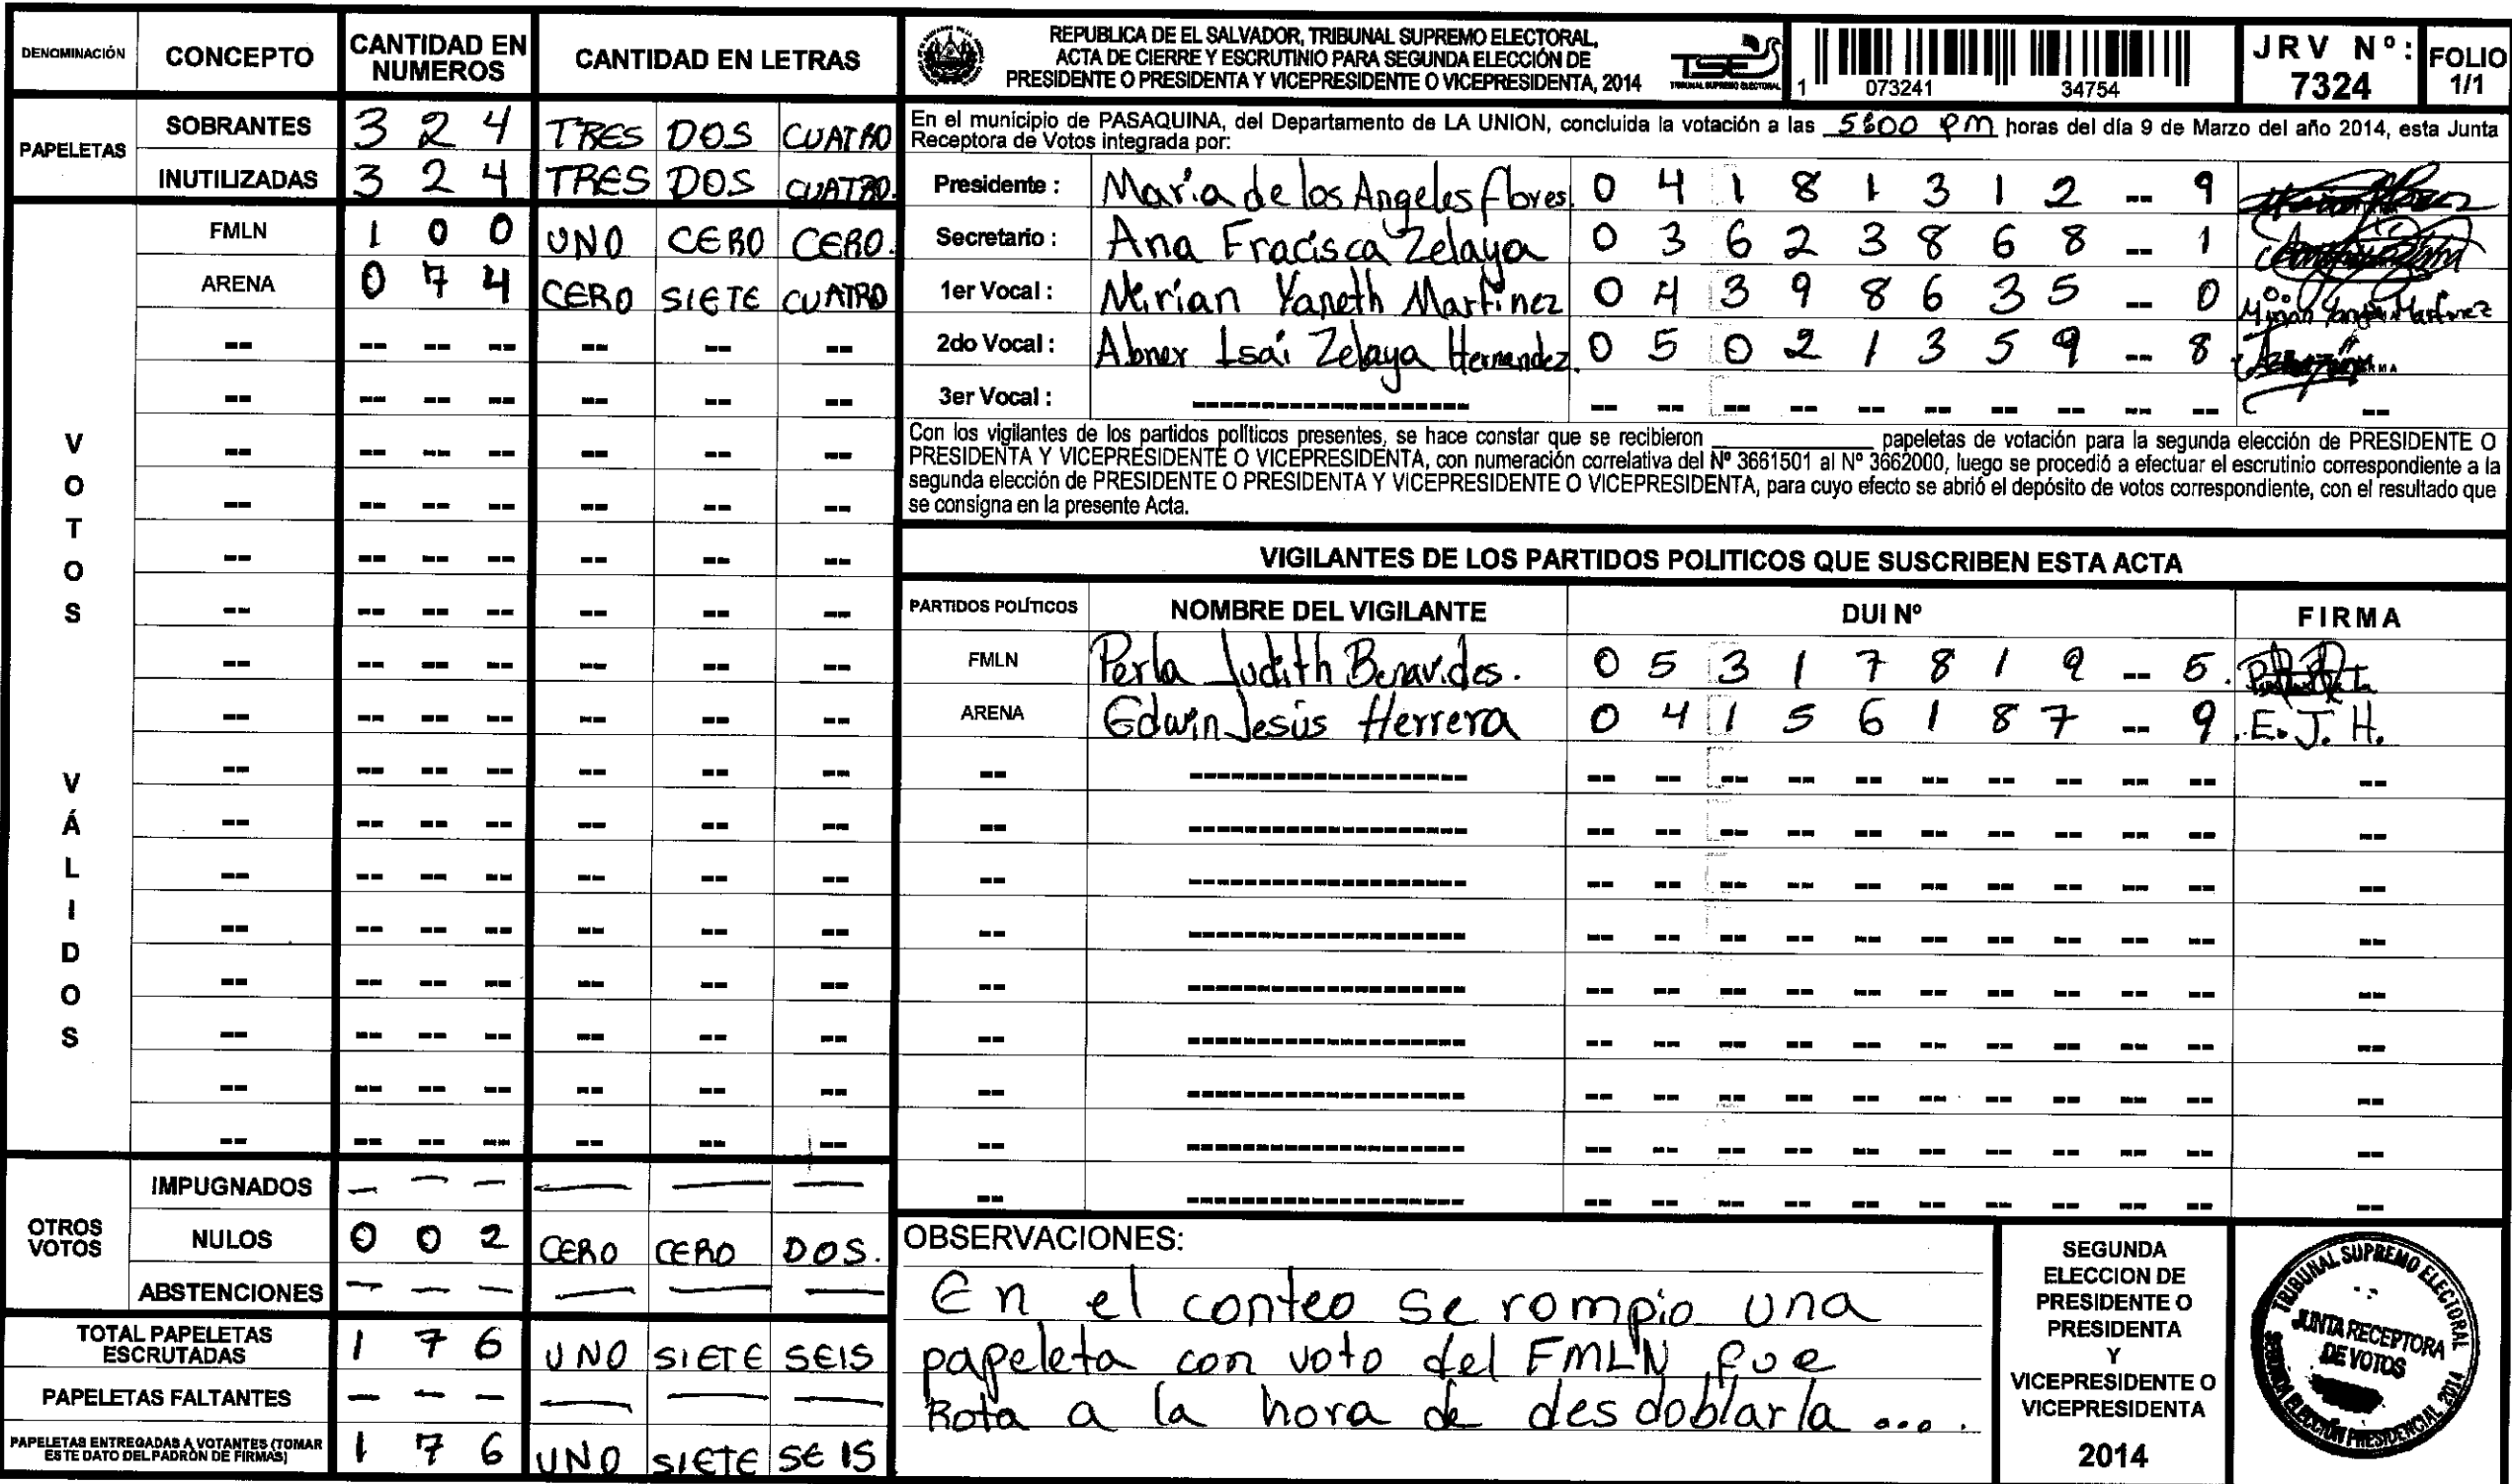 DENOMINACIÓN CONCEPTO CANTIDAD EN NUMEROS CANTIDAD EN LETRAS
PAPELETAS
SOBRANTES 3 2 4 TRES DOS CUATRO
INUTILIZADAS 3 2 4 TRES DOS CUATRO.
VOTOS VÁLIDOS
FMLN 1 0 0 UNO CERO CERO.
ARENA 0 7 4 CERO SIETE CUATRO
OTROS VOTOS
IMPUGNADOS — — — — — —
NULOS 0 0 2 CERO CERO DOS.
ABSTENCIONES — — — — — —
TOTAL PAPELETAS ESCRUTADAS 1 7 6 UNO SIETE SEIS
PAPELETAS FALTANTES — — — — — —
PAPELETAS ENTREGADAS A VOTANTES (TOMAR ESTE DATO DEL PADRÓN DE FIRMAS) 1 7 6 UNO SIETE SEIS
REPUBLICA DE EL SALVADOR, TRIBUNAL SUPREMO ELECTORAL,
ACTA DE CIERRE Y ESCRUTINIO PARA SEGUNDA ELECCIÓN DE
PRESIDENTE O PRESIDENTA Y VICEPRESIDENTE O VICEPRESIDENTA, 2014
TSE
TRIBUNAL SUPREMO ELECTORAL
1 073241 34754
JRV Nº: 7324
FOLIO 1/1
En el municipio de PASAQUINA, del Departamento de LA UNION, concluida la votación a las 5:00 PM horas del día 9 de Marzo del año 2014, esta Junta
Receptora de Votos integrada por:
Presidente : Maria de los Angeles flores. 0 4 1 8 1 3 1 2 -- 9
Secretario : Ana Fracisca Zelaya 0 3 6 2 3 8 6 8 -- 1
1er Vocal : Mirian Yaneth Martinez 0 4 3 9 8 6 3 5 -- 0
2do Vocal : Abner Isai Zelaya Hernandez. 0 5 0 2 1 3 5 9 -- 8
3er Vocal :
Con los vigilantes de los partidos políticos presentes, se hace constar que se recibieron ____ papeletas de votación para la segunda elección de PRESIDENTE O
PRESIDENTA Y VICEPRESIDENTE O VICEPRESIDENTA, con numeración correlativa del Nº 3661501 al Nº 3662000, luego se procedió a efectuar el escrutinio correspondiente a la
segunda elección de PRESIDENTE O PRESIDENTA Y VICEPRESIDENTE O VICEPRESIDENTA, para cuyo efecto se abrió el depósito de votos correspondiente, con el resultado que
se consigna en la presente Acta.
VIGILANTES DE LOS PARTIDOS POLITICOS QUE SUSCRIBEN ESTA ACTA
PARTIDOS POLÍTICOS NOMBRE DEL VIGILANTE DUI Nº FIRMA
FMLN Perla Judith Benavides. 0 5 3 1 7 8 1 9 -- 5.
ARENA Edwin Jesús Herrera 0 4 1 5 6 1 8 7 -- 9. E. J. H.
OBSERVACIONES:
En el conteo se rompio una
papeleta con voto del FMLN fue
Rota a la hora de desdoblarla ....
SEGUNDA
ELECCION DE
PRESIDENTE O
PRESIDENTA
Y
VICEPRESIDENTE O
VICEPRESIDENTA
2014
TRIBUNAL SUPREMO ELECTORAL
JUNTA RECEPTORA
DE VOTOS
SEGUNDA ELECCIÓN PRESIDENCIAL 2014